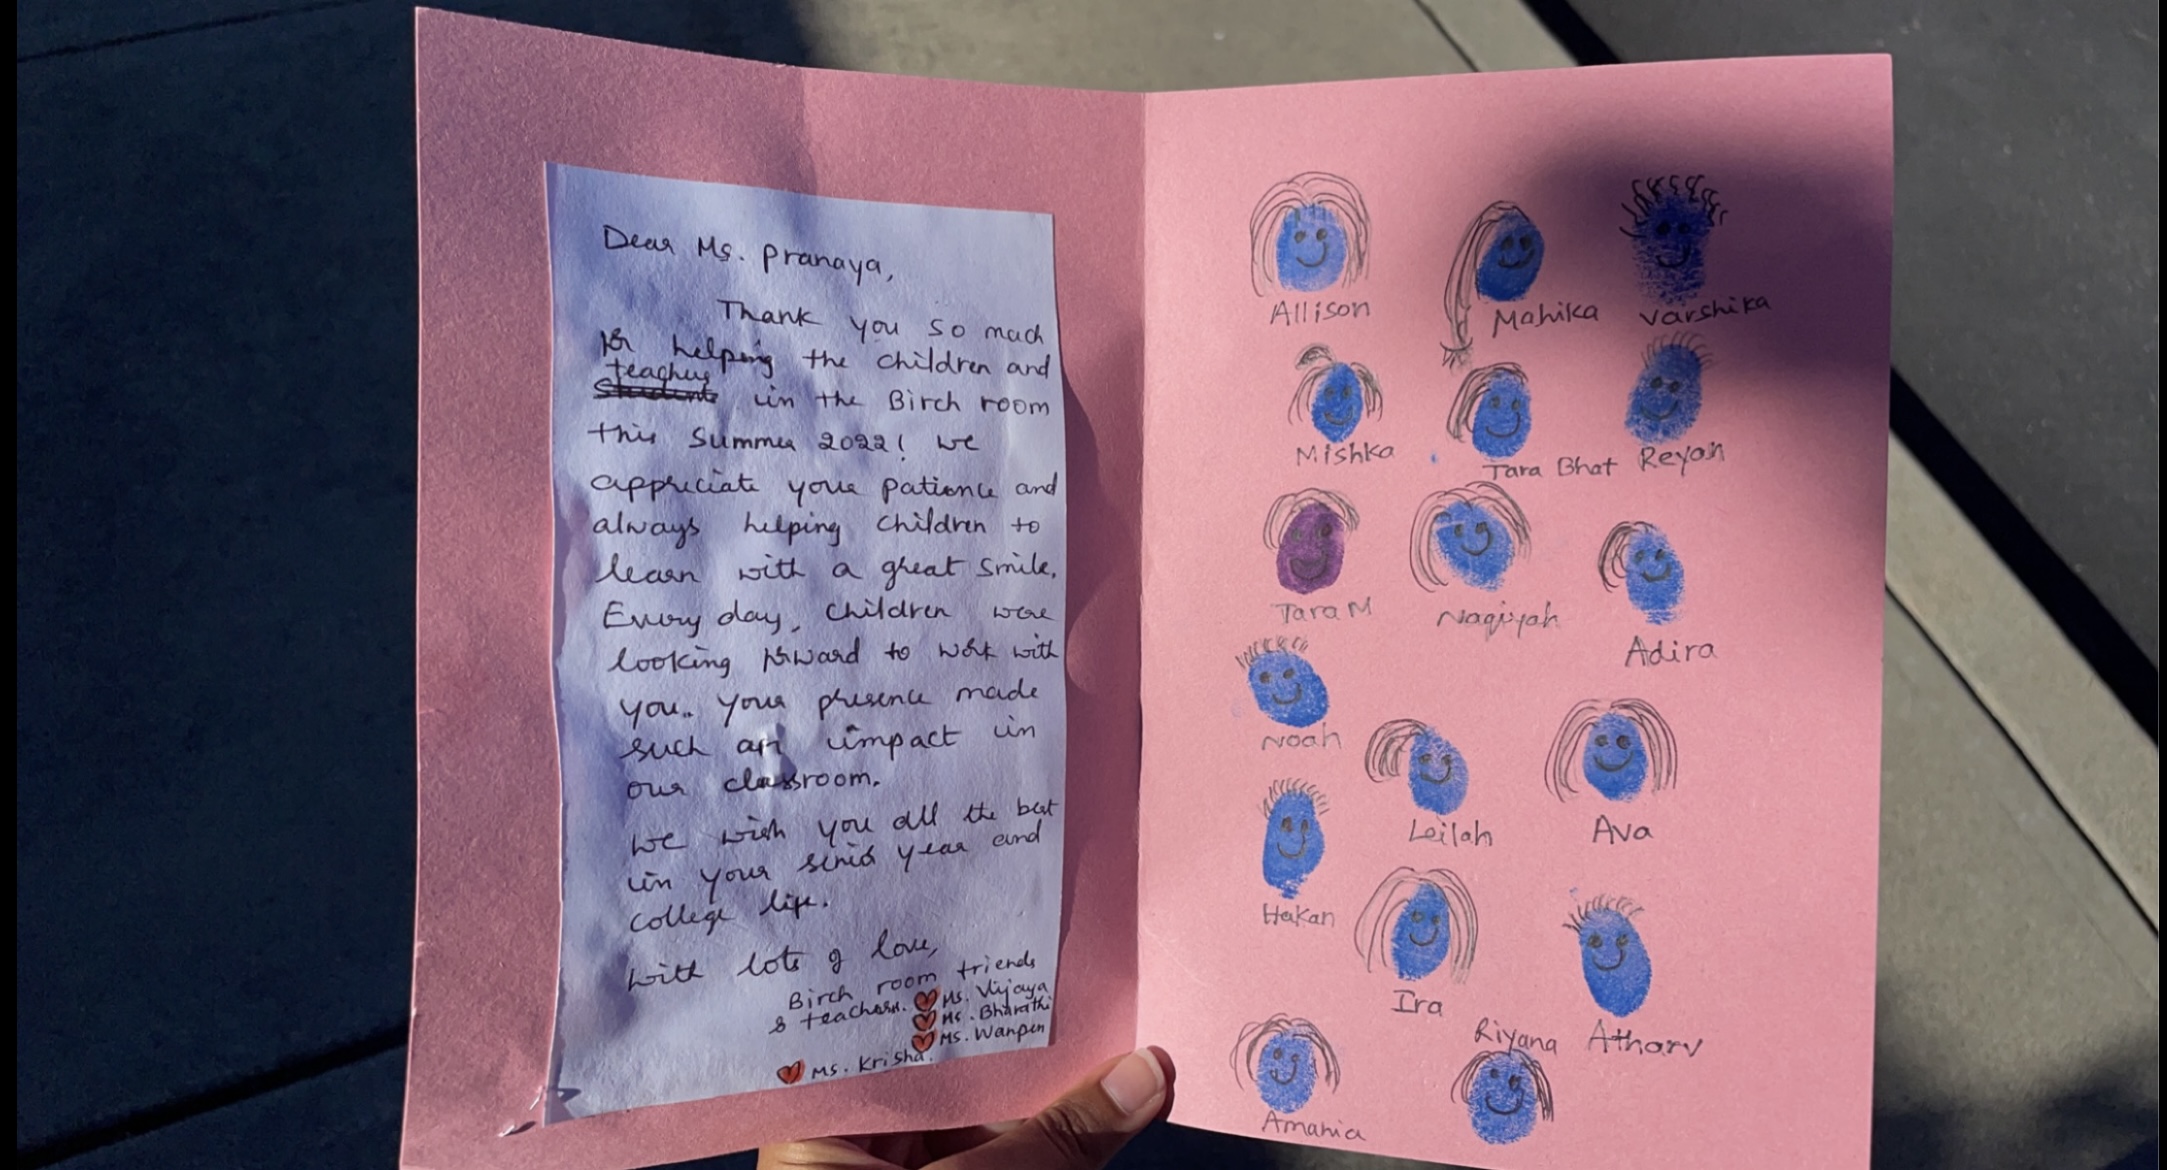 Dear Ms. Pranaya,
Thank you so much
for helping the children and
teachers
in the Birch room
this Summer 2022! we
appreciate your patience and
always helping children to
learn with a great smile.
Every day, children were
looking forward to work with
you.. your presence made
such an impact in
our classroom.
we wish you all the best
in your senior year and
college life.
with lots of love,
Birch room friends
& teachers. Ms. Vijaya
Ms. Bharathi
Ms. Wanpen
Ms. Krisha.
Allison Mahika Varshika
Mishka Tara Bhat Reyan
Tara M Naqiyah Adira
Noah
Leilah Ava
Hakan
Ira
Riyana Atharv
Amania